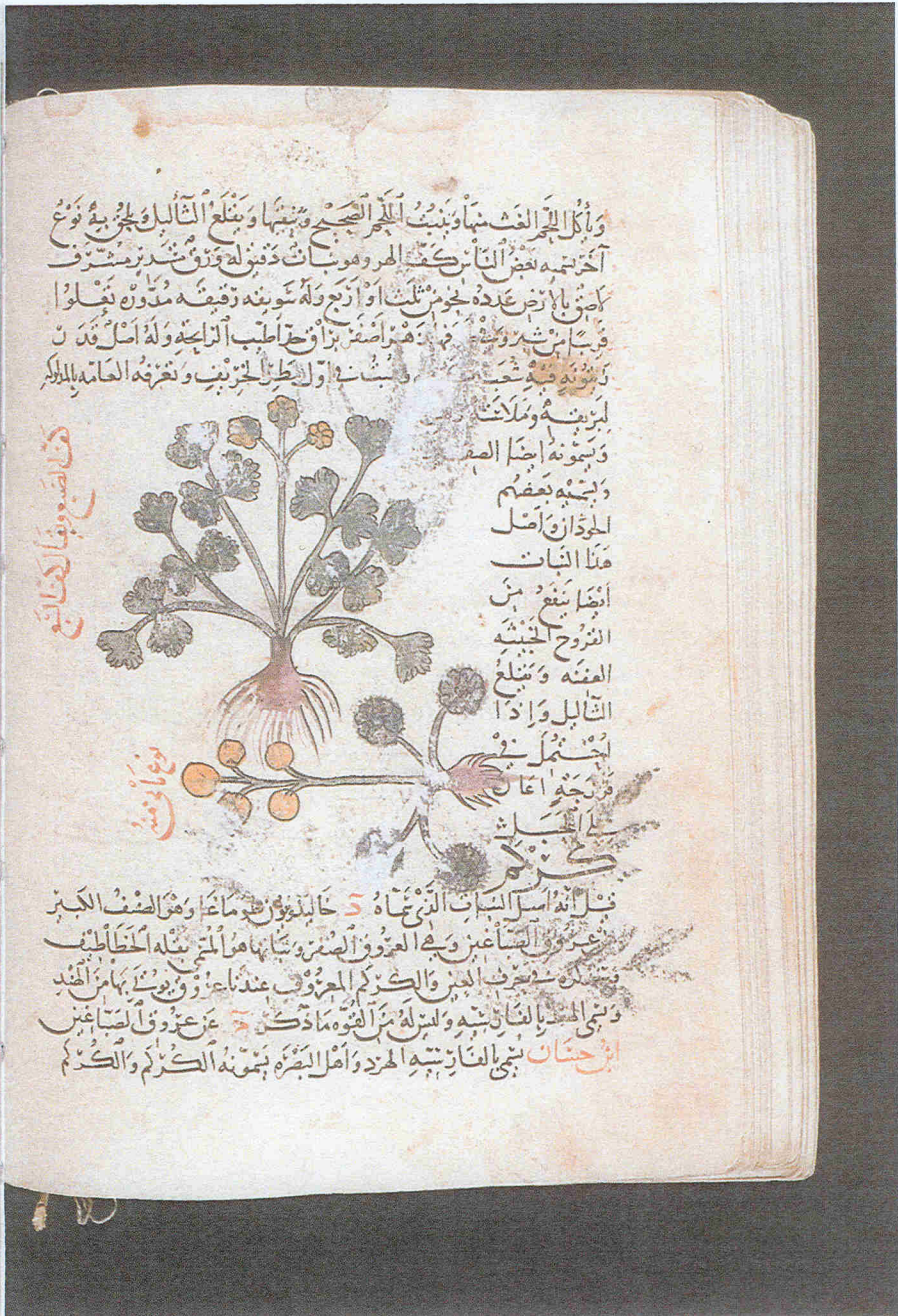 وَيأكُل اللَّحْم الغَث منهَا وَينبُتُ اللَّحْم الصَّحِيْح وَيُنَقيهَا وَيَقْلَعُ الثَّآليل وَيلحَق بِهِ نَوْعُ
آخَر يسَمِيه بَعْضُ النَّاس كَفّ الهر وهو نبات دَقيق له وَرَق مُستَدير مشَرَّف
لَاصِق بالارض عَدده نحو من ثلث اَوْ اَرْبَع وَلَه سُوَيقه رَقيقَه مُدَوَّره تَعْلُوا
قَريبًا مِنْ شبر زَهْر اَصْفَر بَرَّاق جدّا طيّب الرَايحَةِ وَلَهُ اصل قَدْر
زَيتُونَهِ فيهِ شُعَب وينبت في اَوّل مَطَر الخَريف وَتَعْرفُه العَامّه
لبَريقه وَمَلَاسَته
وَيسَمّونَه ايضا
وَيسَمّيه بَعضهم
الحوذان وَاَصْل
هَذَا النَّبات
اَيْضًا يَنفَعُ مِنَ
القُروح الخَبيْثَه
العَفِنَه وَيَقلَعُ
الثآليل وَاِذَا
اُحْتُمِلَ في
فَرْزَجَةٍ اَعَان
عَلى الحَبَل
كُرْكُم
قيْلَ اِنَّهُ اَصْل النبَاتِ الَّذي سَمّاهُ د خَاليدُونيُون طُو ماغا وَهُو الصّنْفُ الكَبير
مِن عُرُوق الصَّبّاغين وَهِي العُرُوق الصُّفر وَنبَاتها هُو المُسَمّى بقلَه الخَطَاطيف
في حَرْف العَين وَالكُركم المَعرُوف عندنا عُروق يُوتى بهَا منَ الهند
وَيسَمّى الهرد بالفَارسيّه وَليس لَهُ مِنَ القُوّه مَا ذَكَر د عَن عُرُوق الصَّبّاغين
ابن حَسّان يُسَمّى بالفَارسيّه الهرد وَاَهْل البَصْرَه يُسَمّونَهُ الكُركُم وَالكُركُم
هذا الضبع ويقال
نوع ثاني منه